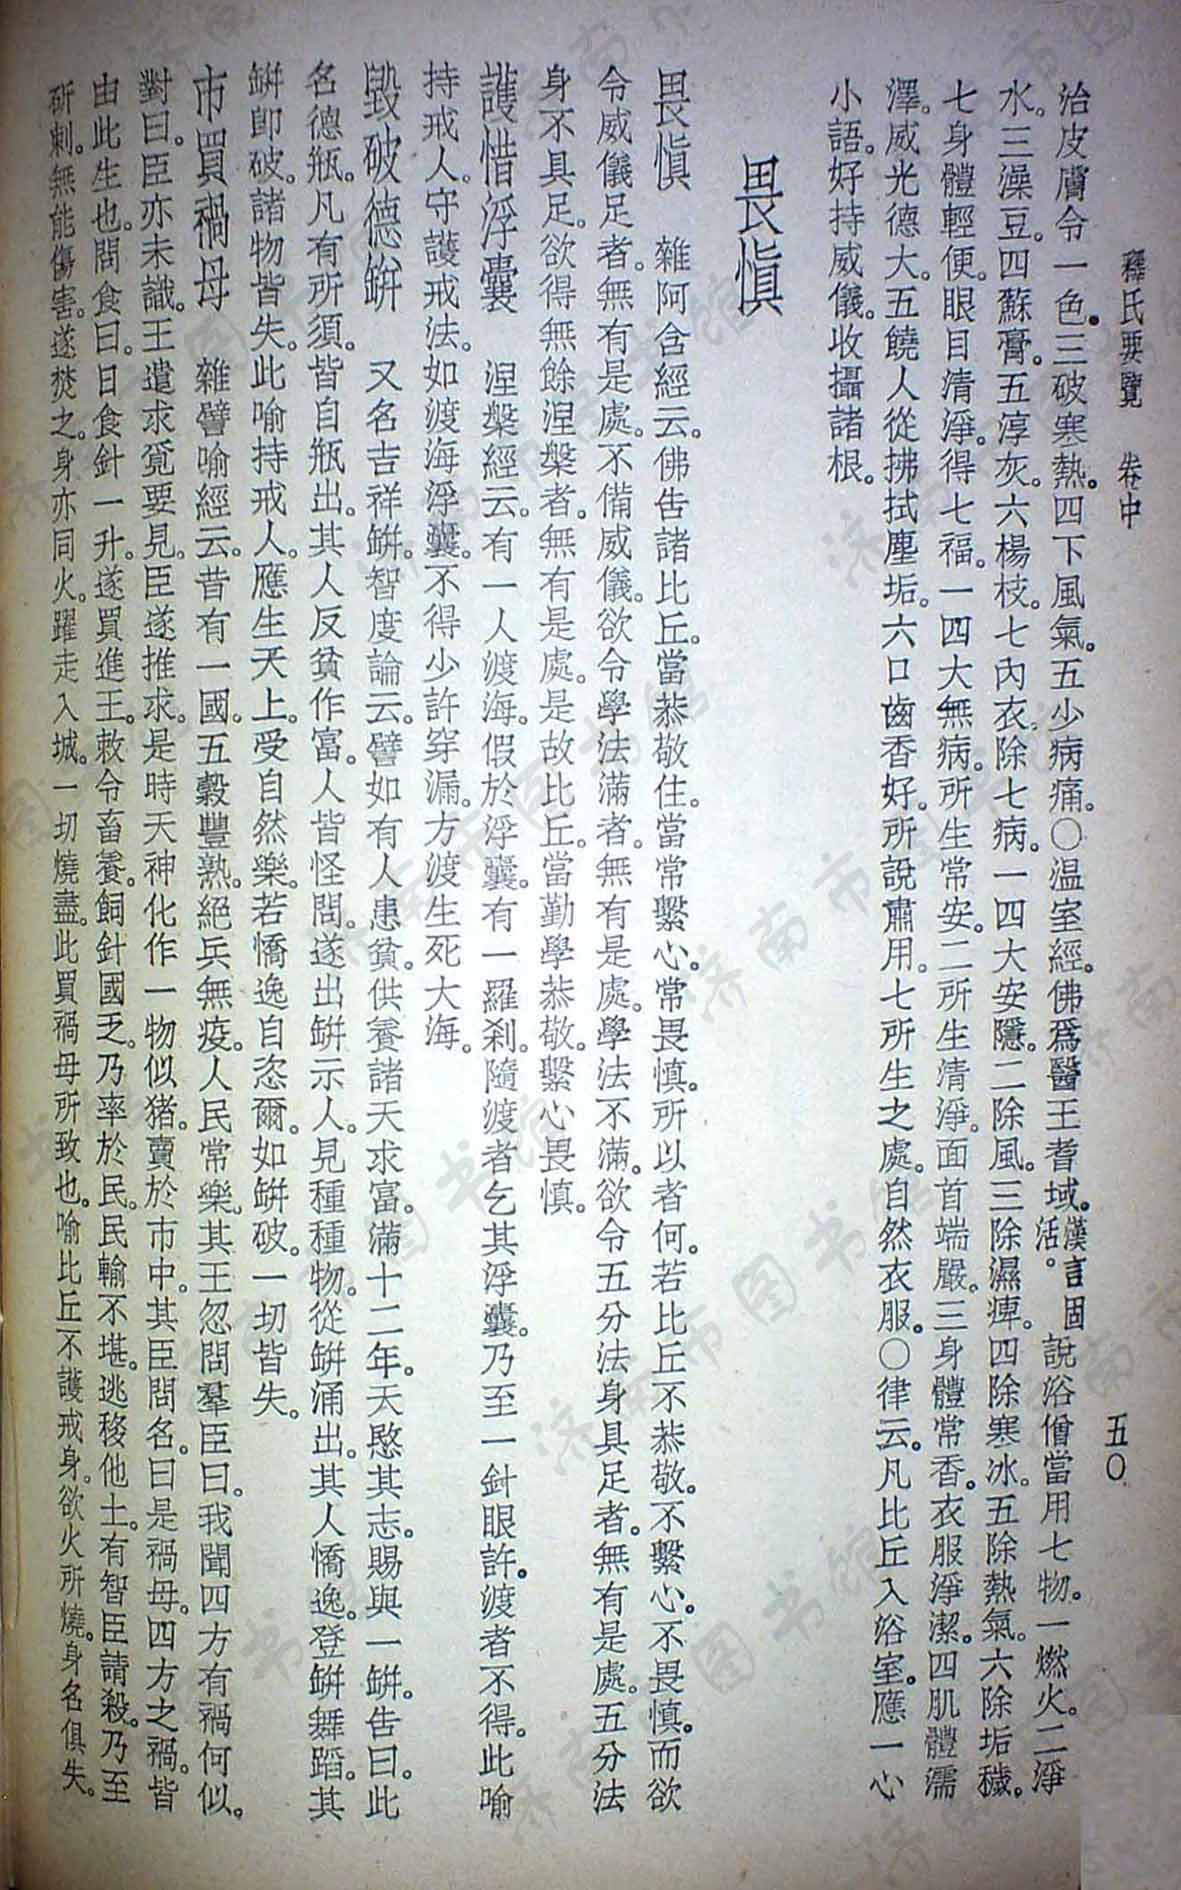 釋氏要覽　卷中　五〇
治皮膚令一色。三破寒熱。四下風氣。五少病痛。〇温室經。佛爲醫王耆域。漢言固活。說浴僧當用七物。一燃火。二淨
水。三澡豆。四蘇膏。五淳灰。六楊枝。七內衣。除七病。一四大安隱。二除風。三除濕痺。四除寒冰。五除熱氣。六除垢穢。
七身體輕便。眼目清淨。得七福。一四大無病。所生常安。二所生清淨。面首端嚴。三身體常香。衣服淨潔。四肌體濡
澤。威光德大。五饒人從拂拭塵垢。六口齒香好。所說肅用。七所生之處。自然衣服。〇律云。凡比丘入浴室。應一心
小語。好持威儀。收攝諸根。
畏愼
畏愼　雜阿含經云。佛告諸比丘。當恭敬住。當常繫心。常畏慎。所以者何。若比丘不恭敬。不繫心。不畏慎。而欲
令威儀足者。無有是處。不備威儀。欲令學法滿者。無有是處。學法不滿。欲令五分法身具足者。無有是處。五分法
身不具足。欲得無餘涅槃者。無有是處。是故比丘。當勤學恭敬。繫心畏慎。
護惜浮囊　涅槃經云。有一人渡海。假於浮囊。有一羅刹。隨渡者乞其浮囊。乃至一針眼許。渡者不得。此喻
持戒人。守護戒法。如渡海浮囊。不得少許穿漏。方渡生死大海。
毀破德缾　又名吉祥缾。智度論云。譬如有人患貧。供養諸天求富。滿十二年。天愍其志。賜與一缾。告曰。此
名德瓶。凡有所須。皆自瓶出。其人反貧作富。人皆怪問。遂出缾示人。見種種物。從缾涌出。其人憍逸。登缾舞蹈。其
缾卽破。諸物皆失。此喻持戒人。應生天上。受自然樂。若憍逸自恣爾。如缾破。一切皆失。
市買禍母　雜譬喻經云。昔有一國。五穀豐熟。絕兵無疫。人民常樂。其王忽問羣臣曰。我聞四方有禍何似。
對曰。臣亦未識。王遣求覓要見。臣遂推求。是時天神化作一物似猪。賣於市中。其臣問名。曰是禍母。四方之禍。皆
由此生也。問食。曰。日食針一升。遂買進王。敕令畜養。飼針國乏。乃率於民。民輸不堪。逃移他土。有智臣請殺。乃至
斫刺。無能傷害。遂焚之。身亦同火。躍走入城。一切燒盡。此買禍母所致也。喻比丘不護戒身。欲火所燒。身名俱失。